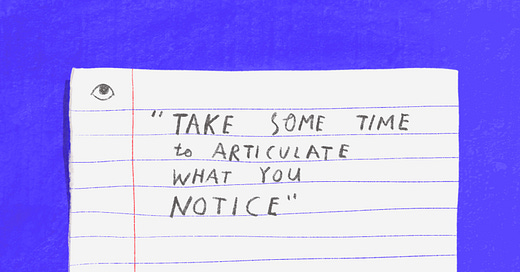 "TAKE SOME TIME
to ARTICULATE
WHAT YOU
NOTICE"